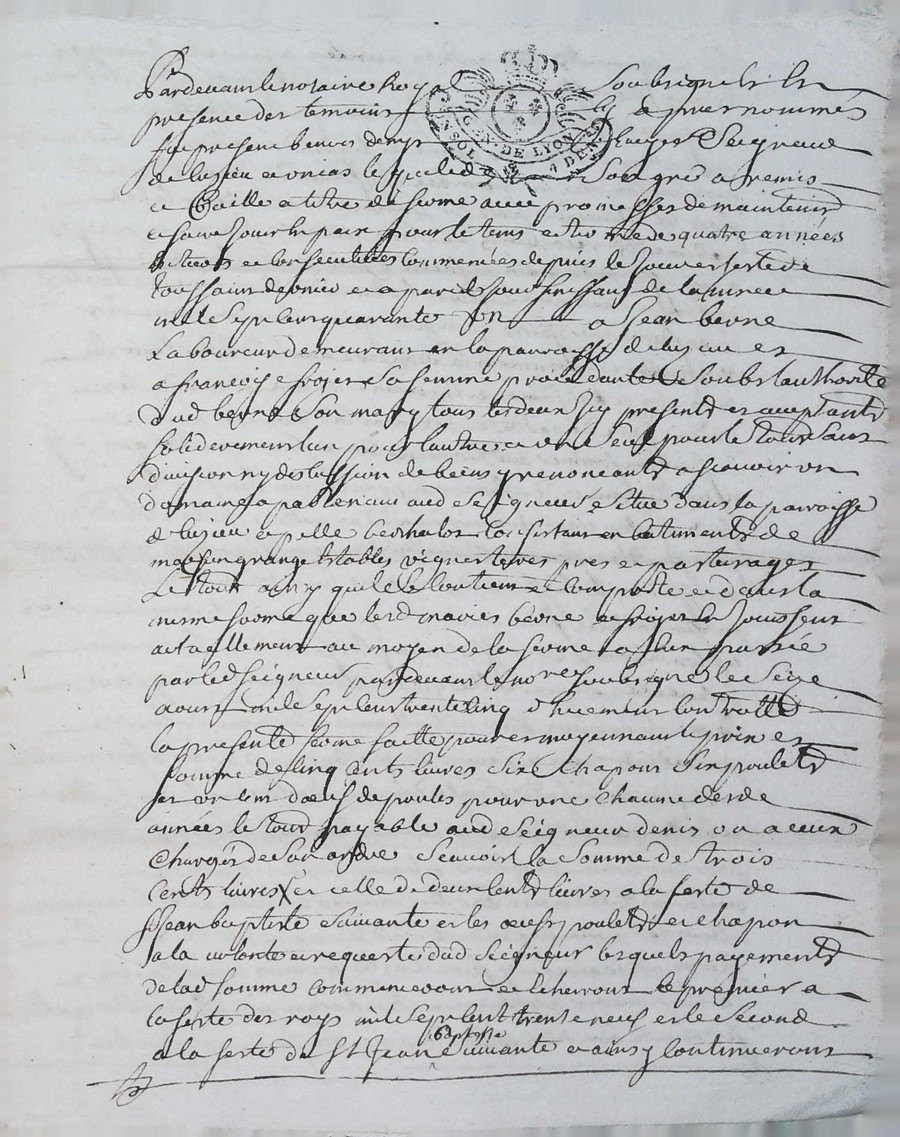 Pardevant le notaire Roy soubsigné & en
presence des temoins cy apres nommés
fut presen benois denys Seigneur
de lusieu lequel de Son gré a remis
et Baillé a titre de ferme avec promesses de maintenir
et faire jouir en paix pour le tems et terme de quatre années
et consecutives commencées depuis le jour et feste de
toussaint dernier et a pareil jour finissant de la année
mil sept cens quarante un a Jean berne
Laboureur demeurant en la parroisse de lusieu et
a françoise frojet sa femme procedante de Soubs lauthorité
dud berne Son mary tous les deux icy presents et acceptants
solidairement lun pour lautre et un Seul pour le tout sans
division ny discussion de biens y renonceants a scavoir un
domaine appartenant aud Seigneur Situé dans la parroisse
de lusieu appellé consistant en batiments de
maison grange etables vigne terres pres et pasturages
Le tout ainsy quil se contient et comporte et dans la
mesme forme que lesd mariés berne et frojet en jouissent
actuellement au moyen de la ferme a eux passée
par led Seigneur pardevant le nore soubsigné le Seize
aoust mil sept cens trente cinq duement controllé
la presente ferme faitte pour et moyennant le prix et
somme de cinq cents livres six chapons six poulets
et un cent d'œufs de poules pour une chacune desde
années le tout payable aud Seigneur denis ou a ceux
chargés de son ordre Scavoir la somme de trois
cents livres et celle de deux cents livres a la feste de
St Jean baptiste suivante et les œufs poulets et chapon
a la volonté et requeste dud Seigneur lesquels payements
de lad somme commenceront et echerront le premier a
la feste des roys mil sept cent trente neuf et le second
a la feste de St Jean baptiste suivante et ainsy continueront
GEN. DE LYON
UN SOL
4 DEN.